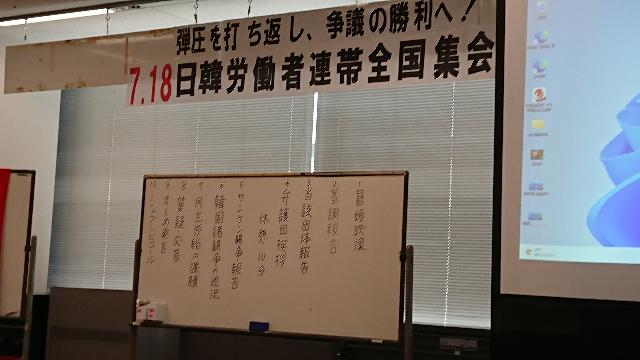 弾圧を打ち返し、争議の勝利へ!
7.18日韓労働者連帯全国集会
1 冒頭映像
2 基調報告
3 当該団体報告
4 弁護団挨拶
休憩 10分
5 サンケン闘争報告
6 韓国諸闘争の近況
7 民主労総の課題
8 質疑応答
9 まとめ発言
10 シュプレヒコール